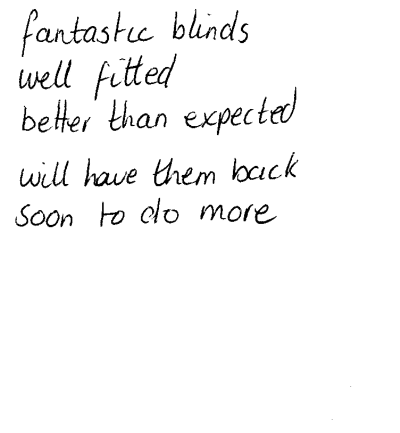 fantastic blinds
well fitted
better than expected
will have them back
soon to do more